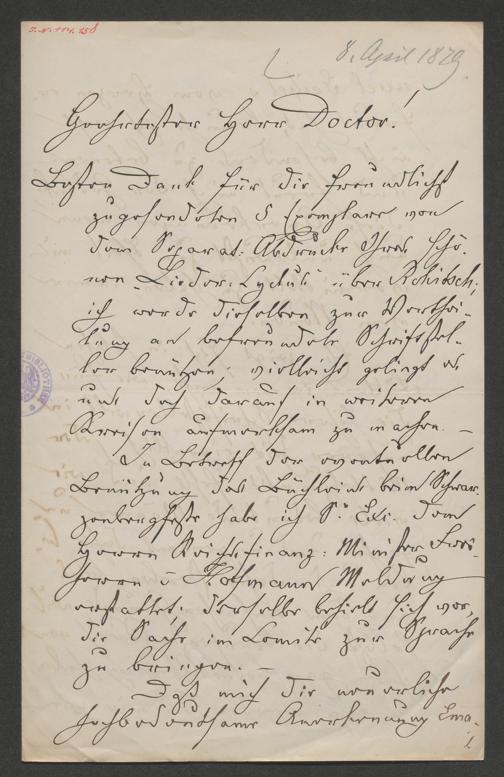 I.N. 114.258
8. April 1879.
Geehrtester Herr Doctor!
Besten Dank für die freundlichst
zugesendeten 5 Exemplare von
dem Separat-Abdrucke Ihres schö-
nen „Lieder-Cyclus“ über Rohitsch;
ich werde dieselben zur Verthei-
lung an befreundete Schriftstel-
ler benützen; vielleicht gelingt es
uns doch darauf in weiteren
Kreisen aufmerksam zu machen. –
In Betreff der eventuellen
Benützung des Büchleins beim Schwar-
zenbergfeste habe ich Sr. Exc. dem
Herrn Reichsfinanz-Minister Frei-
herrn v Hofmann Meldung
erstattet; derselbe behielt sich vor,
die Sache im Comité zur Sprache
zu bringen. –
Daß mich die neuerliche
hochbedeutsame Anerkennung